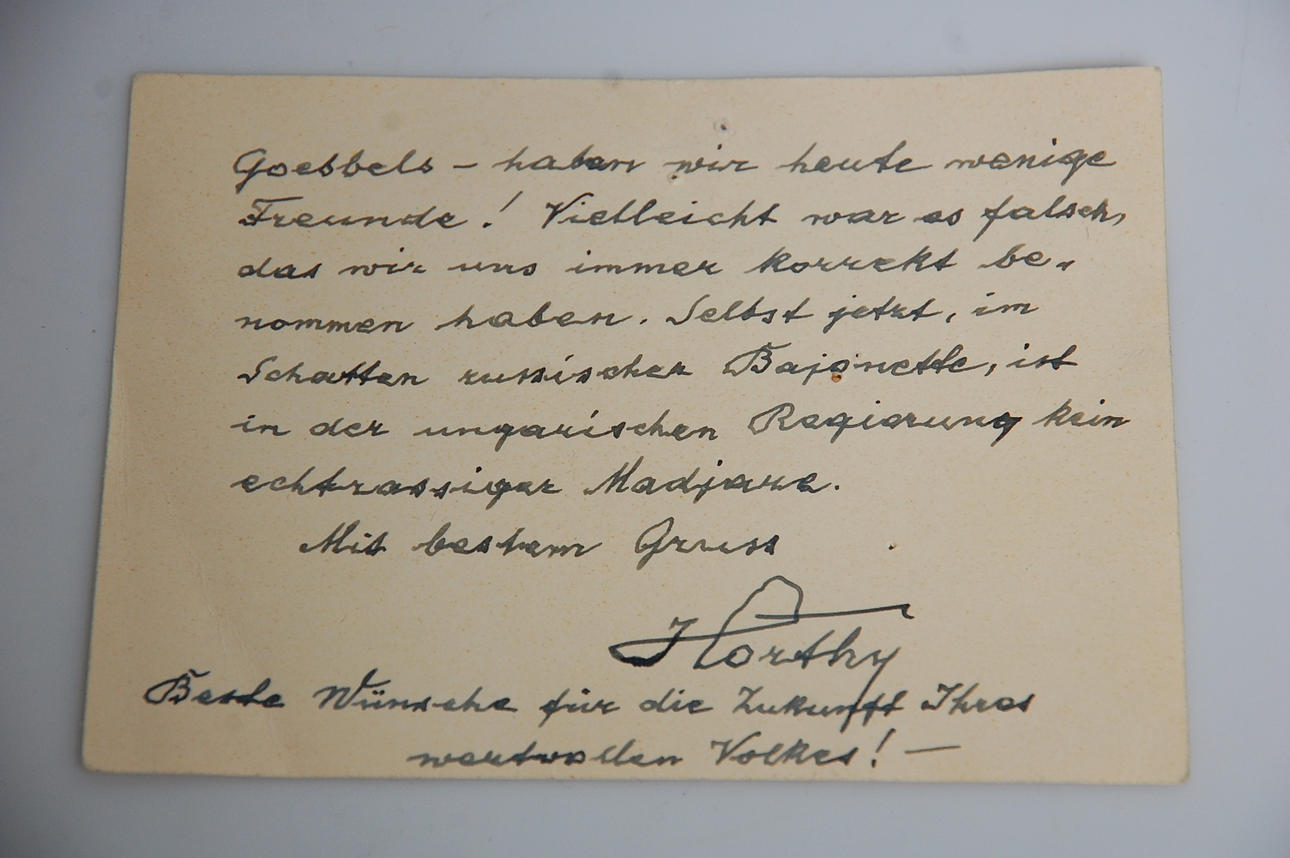 Goebbels – haben wir heute wenige
Freunde! Vielleicht war es falsch,
das wir uns immer korrekt be-
nommen haben. Selbst jetzt, im
Schatten russischer Bajonette, ist
in der ungarischen Regierung kein
echtrassiger Madjare.
Mit bestem Gruss
Horthy
Beste Wünsche für die Zukunft Ihres
wertvollen Volkes! —